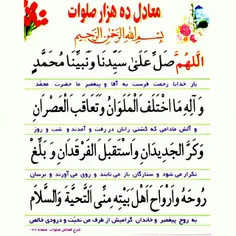 معادل ده هزار صلوات
بسم الله الرحمن الرحیم
اَللّٰهُمَّ صَلِّ عَلىٰ سَيِّدِنَا وَنَبِيِّنَا مُحَمَّدٍ
بار خدایا رحمت فرست به آقا و پیغمبر ما حضرت محمد
وَ آلِهِ مَا اخْتَلَفَ الْمَلَوَانِ وَتَعَاقَبَ الْعَصْرَانِ
و آلش مادامی که کشتی رانان در رفت و آمدند و شب و روز
وَكَرَّ الْجَدِيدَانِ وَاسْتَقْبَلَ الْفَرْقَدَانِ وَ بَلِّغْ
تکرار می شود و ستارگان باز می تابند و روی می آورند و برسان
رُوحَهُ وَأَرْوَاحَ أَهْلِ بَيْتِهِ مِنِّي التَّحِيَّةَ وَالسَّلَامَ
به روح پیغمبر و خاندان گرامیش از طرف من تحیت و درودی خالص